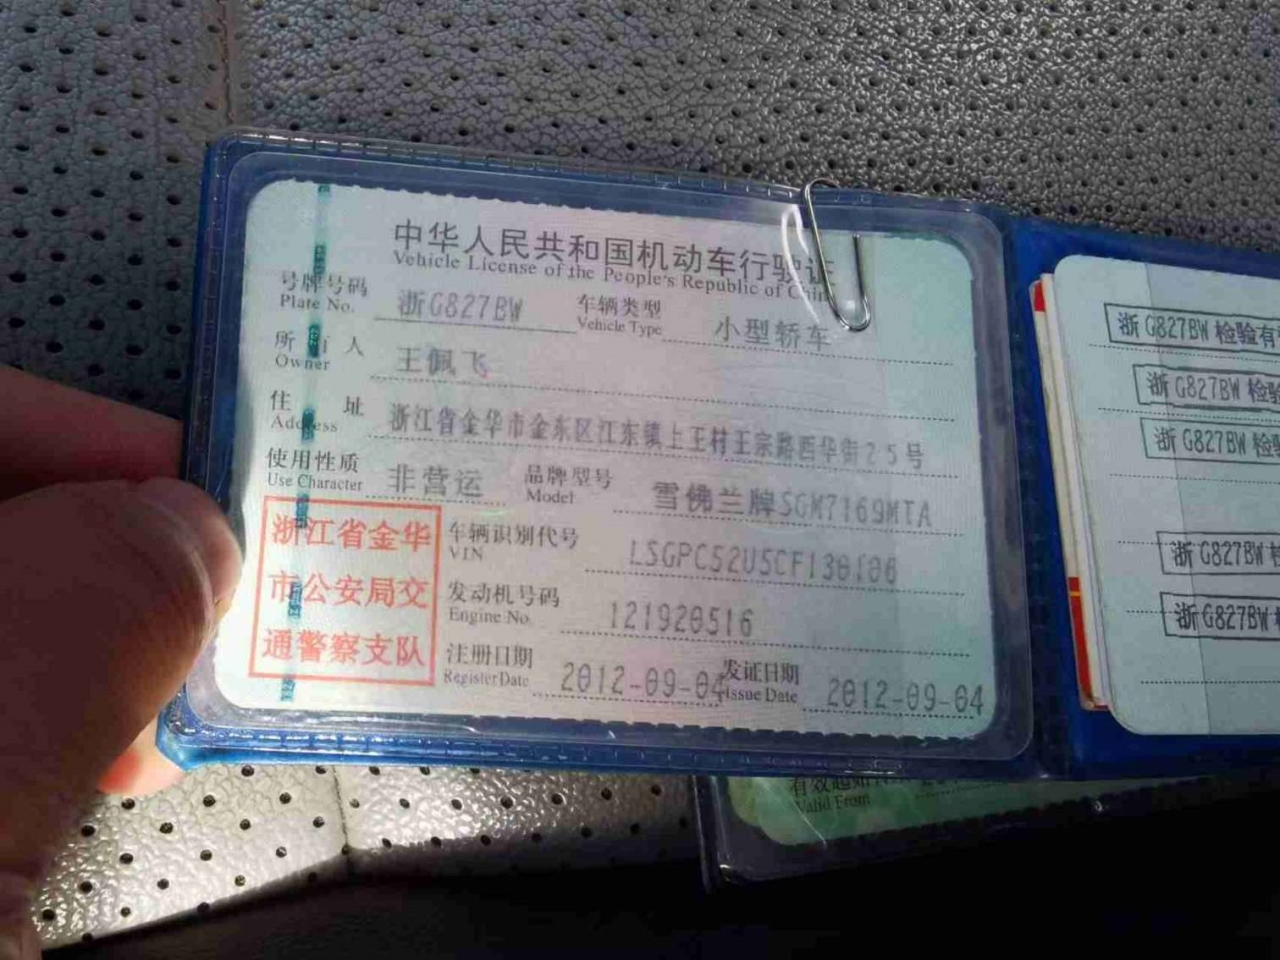 中华人民共和国机动车行驶证
Vehicle License of the People's Republic of China
号牌号码 浙G827BW 车辆类型 小型轿车
Plate No. Vehicle Type
所有人 王佩飞
Owner
住址 浙江省金华市金东区江东镇上王村王宗路西华街25号
Address
使用性质 非营运 品牌型号 雪佛兰牌SGM7169MTA
Use Character Model
浙江省金华
市公安局交
通警察支队
车辆识别代号 LSGPC52U5CF130106
VIN
发动机号码 121920516
Engine No.
注册日期 2012-09-04 发证日期 2012-09-04
Register Date Issue Date
浙G827BW 检验有
浙G827BW 检验
浙G827BW 检
浙G827BW 检
浙G827BW
Valid From